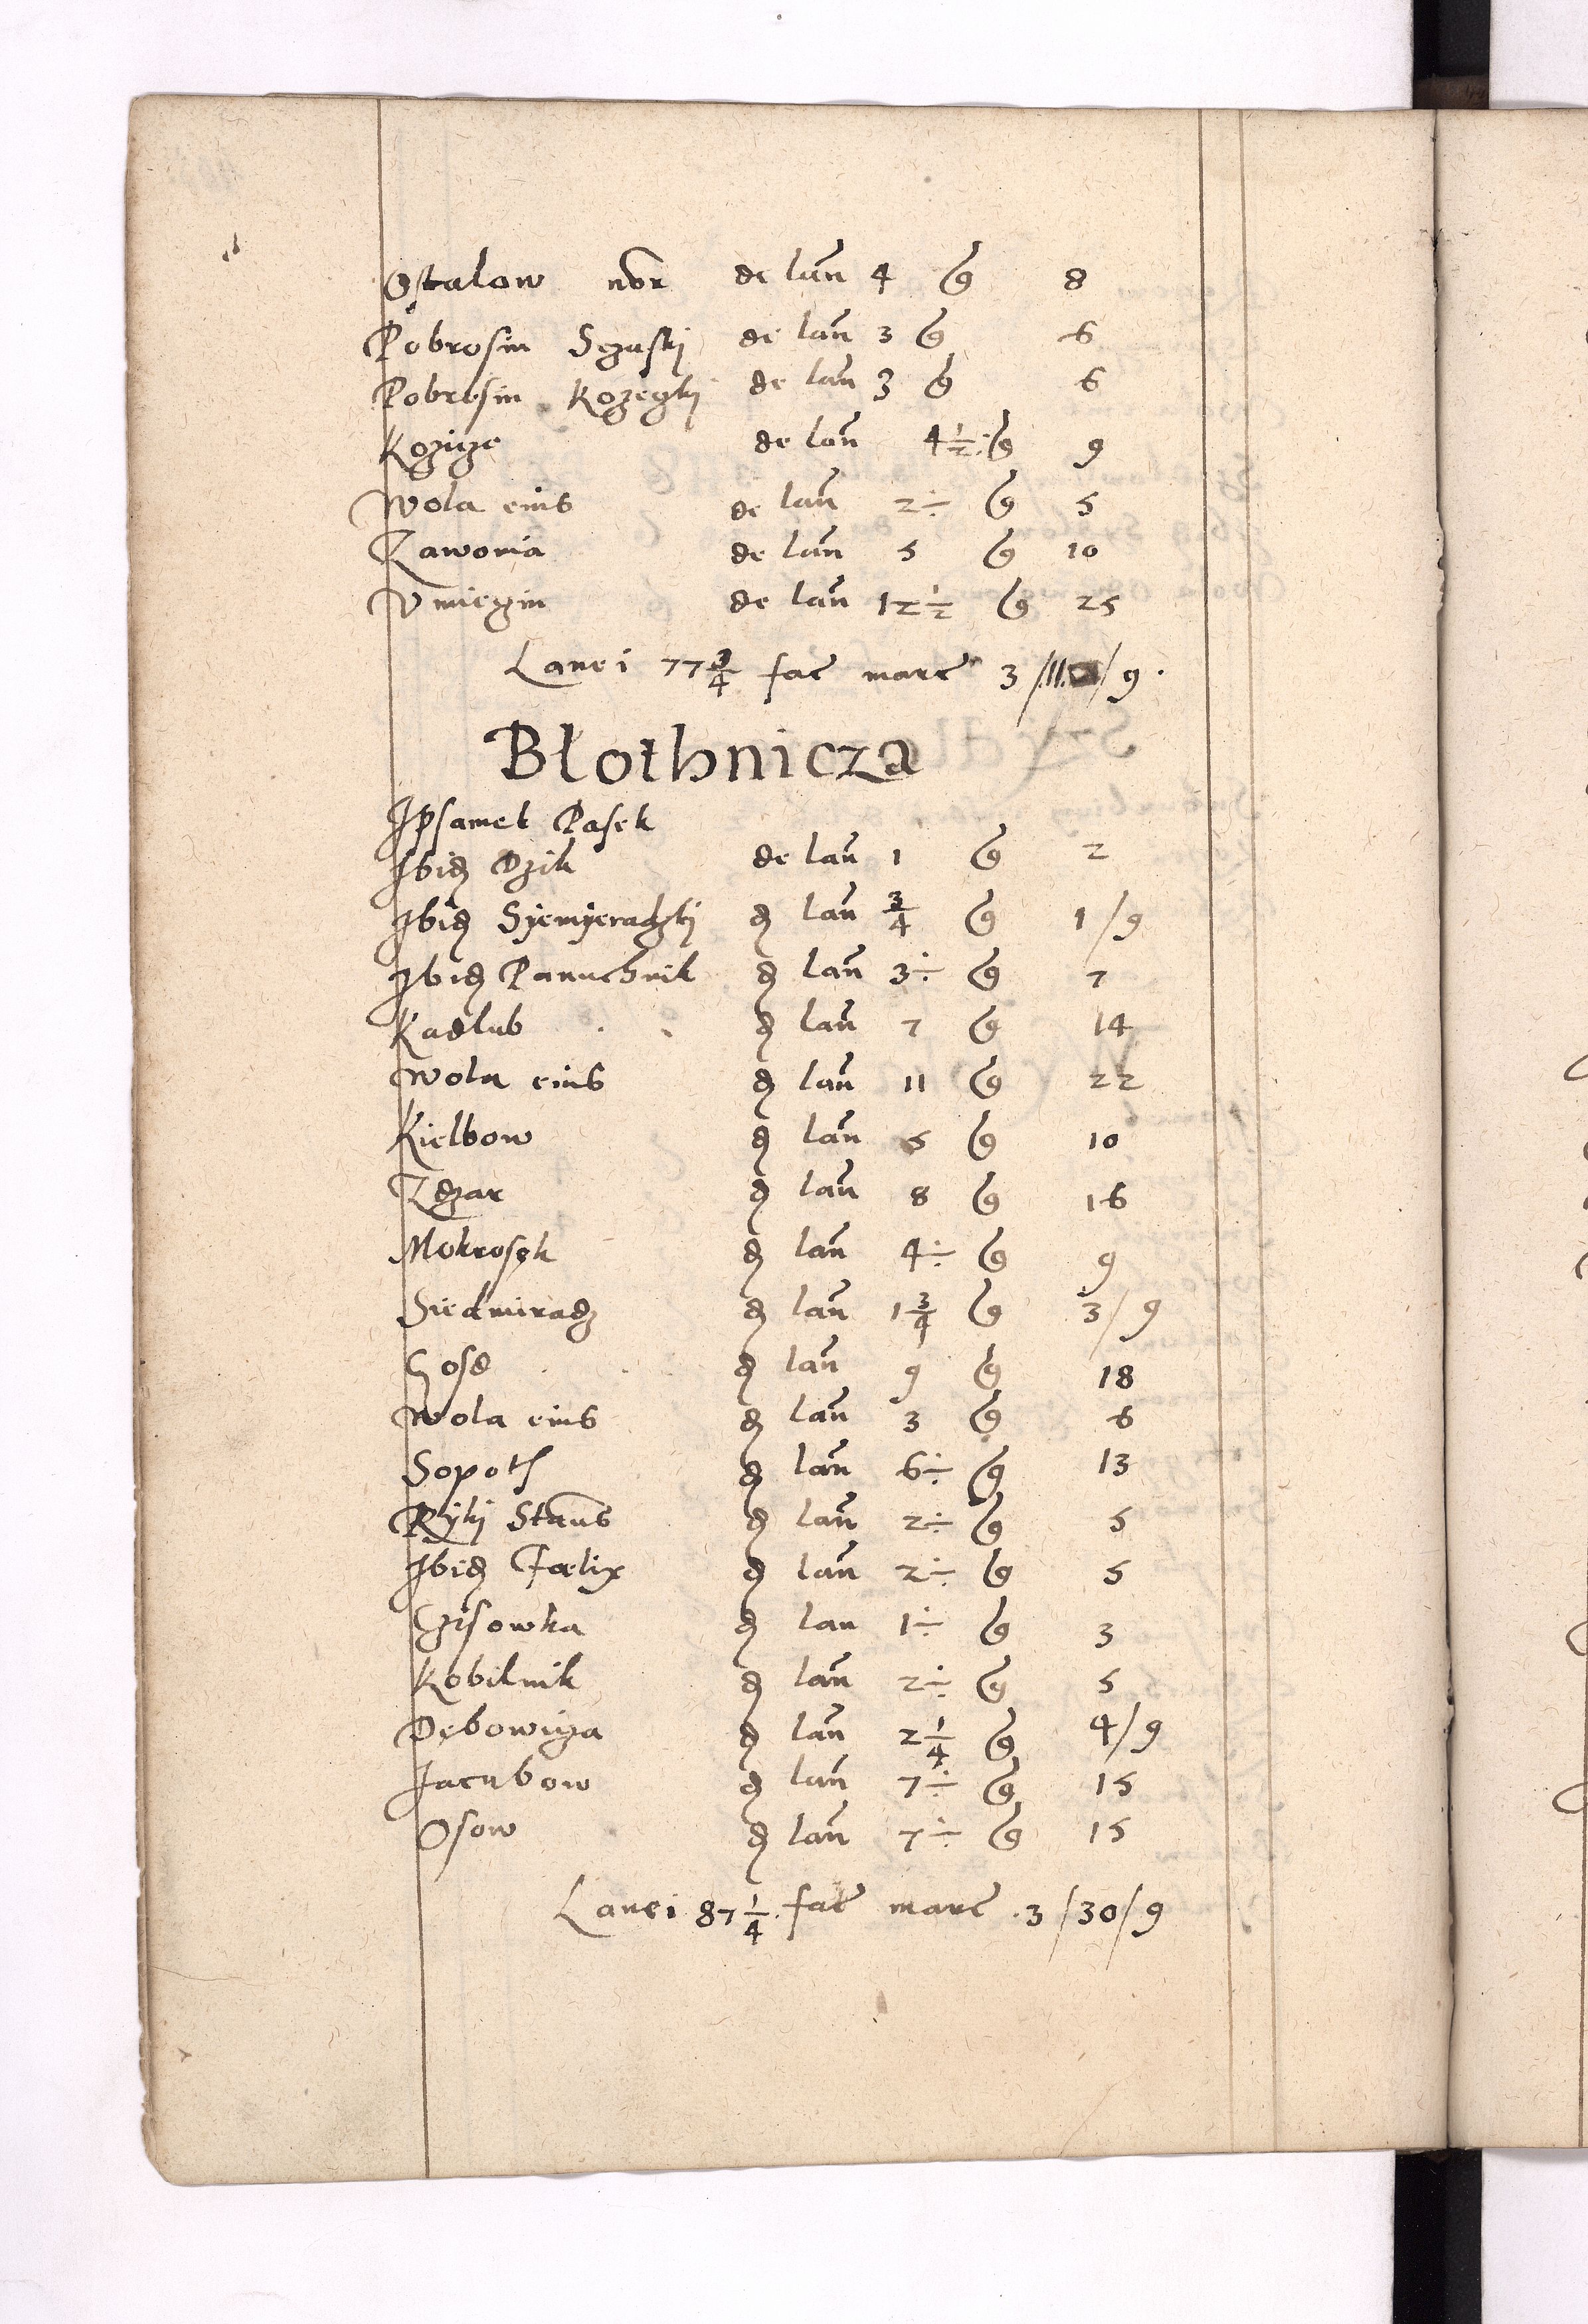 Ostalow nor de lan 4 g 8
Pobrosin Sczuski de lan 3 g 6
Pobrosin Kozeglị de lan 3 g 6
Kozicze de lan 4 1/2 g 9
Wola eius de lan 2 ÷ g 5
Zawonia de lan 5 g 10
Vmieczin de lan 12 1/2 g 25
Lanei 77 3/4 fac marc 3/11/9.
Błothnicza
Ipsamet Pasek
Ibid Dzik de lan 1 g 2
Ibid Syemyeradzki d lan 3/4 g 1/9
Ibid Panuchnik d lan 3 ÷ g 7
Kadlub d lan 7 g 14
Wola eius d lan 11 g 22
Kielbow d lan 5 g 10
Zdzar d lan 8 g 16
Mokrosęk d lan 4 ÷ g 9
Siedmiradz d lan 1 3/4 g 3/9
Gosd d lan 9 g 18
Wola eius d lan 3 g 6
Sopoth d lan 6 ÷ g 13
Ryki Staus d lan 2 ÷ g 5
Ibid Fœlix d lan 2 ÷ g 5
Czisowka d lan 1 ÷ g 3
Kobilnik d lan 2 ÷ g 5
Dębowicza d lan 2 1/4 g 4/9
Jacubow d lan 7 ÷ g 15
Osow d lan 7 ÷ g 15
Lanei 87 1/4 fac marc 3/30/9